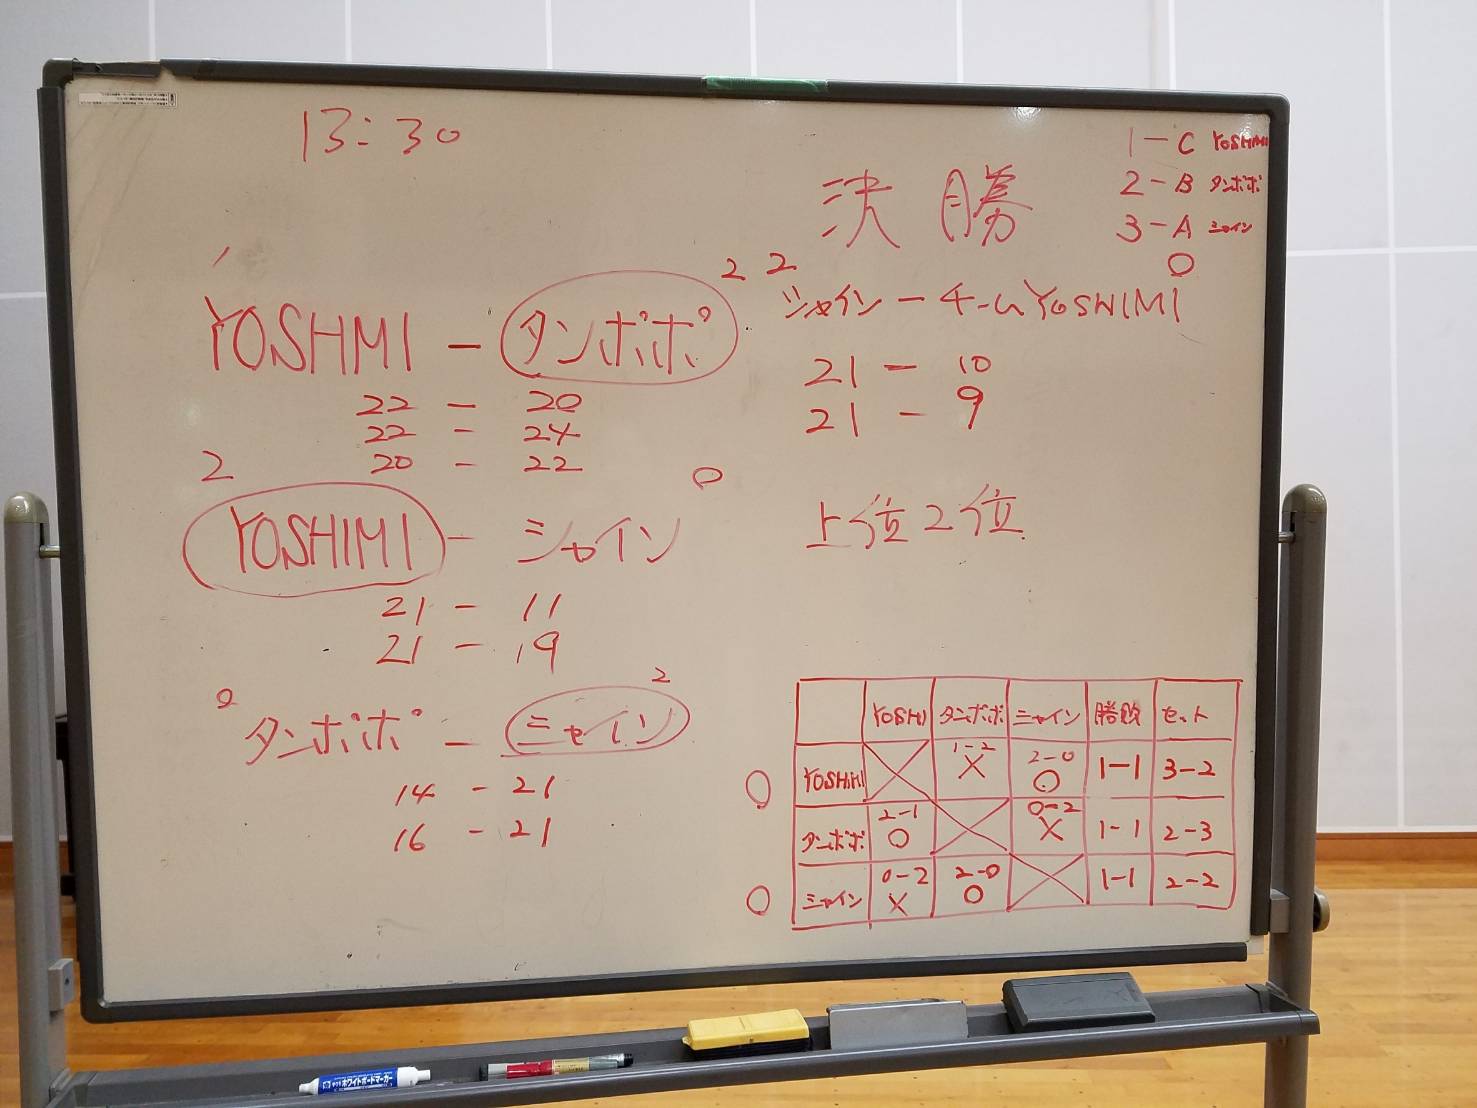 13:30
1-C YOSHIMI
2-B タンポポ
3-A シャイン
決勝
2 0
シャイン - チームYOSHIMI
21 - 10
21 - 9
上位2位
1 2
YOSHMI - タンポポ
22 - 20
22 - 24
20 - 22
2 0
YOSHIMI - シャイン
21 - 11
21 - 19
0 2
タンポポ - シャイン
14 - 21
16 - 21
YOSHI タンポポ シャイン 勝敗 セット
○ YOSHIMI 1-2 × 2-0 ○ 1-1 3-2
タンポポ 2-1 ○ 0-2 × 1-1 2-3
○ シャイン 0-2 × 2-0 ○ 1-1 2-2
ホワイトボードマーカー